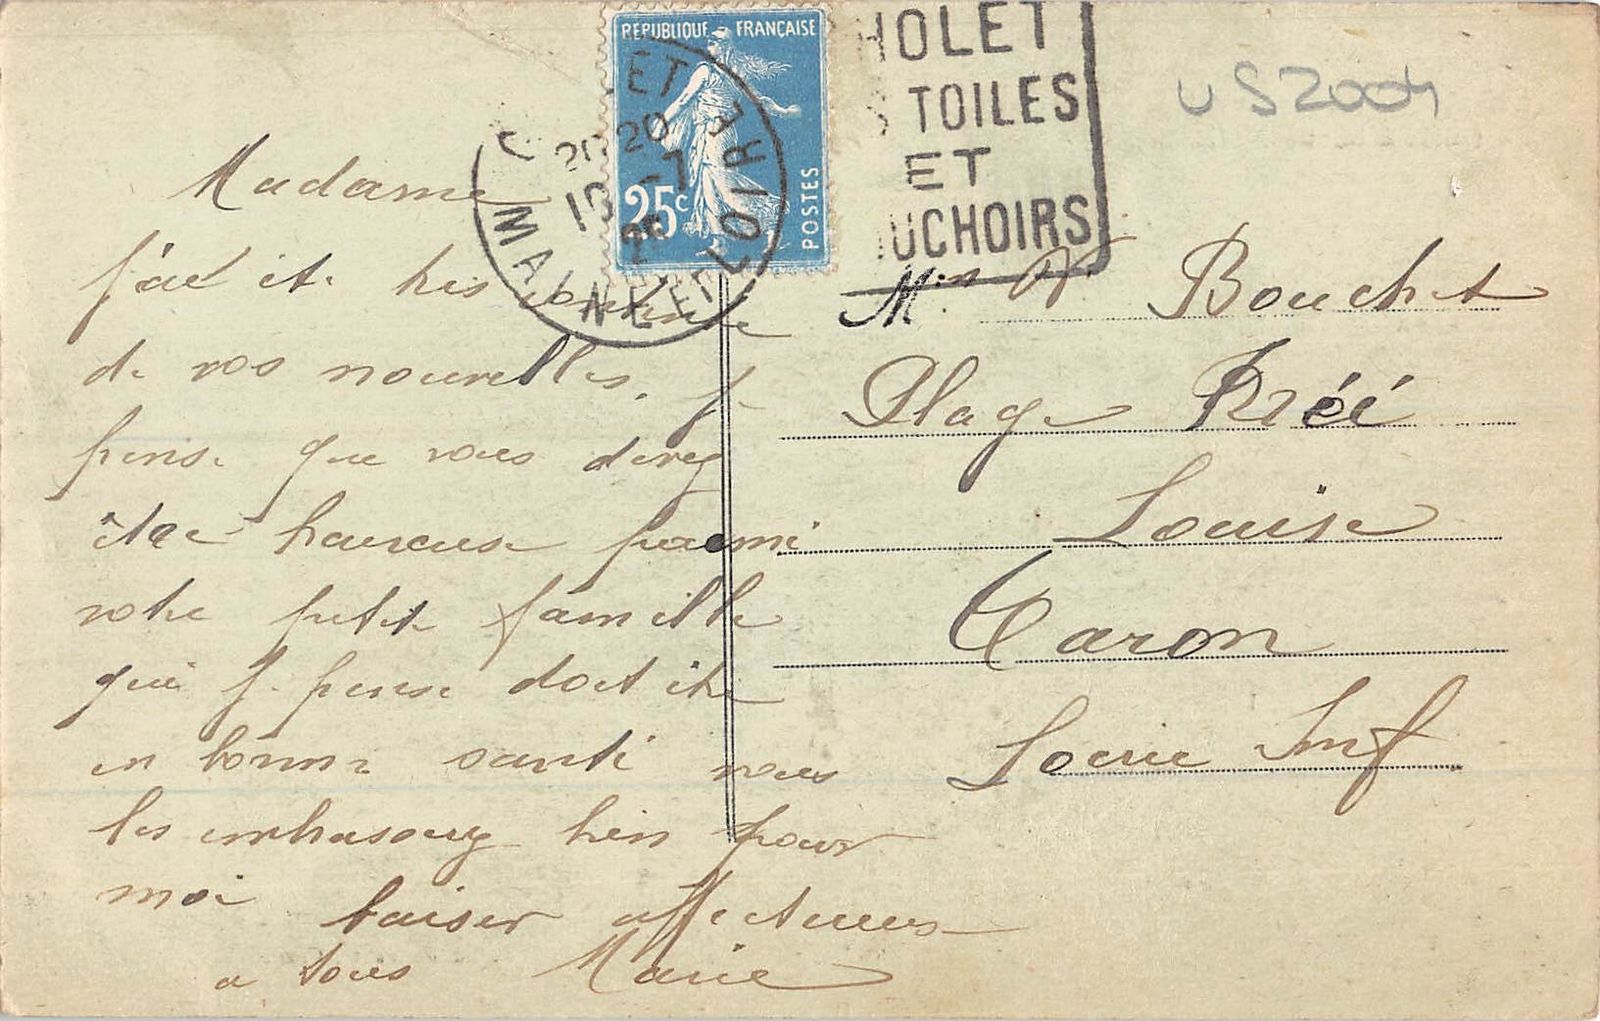 RÉPUBLIQUE FRANÇAISE
25c
POSTES
ET
20 20
-7
25
MAINE ET LOIRE
HOLET
S TOILES
ET
UCHOIRS
US2004
Madame
j'ai été très contente
de vos nouvelles. je
pense que vous devez
être heureuse parmi
votre petite famille
qui je pense doit être
en bonne santé vous
les embrasserez bien pour
moi
baiser affectueux
a tous Marie
Bouchet
Plage
Louise
Caron
Loire Inf